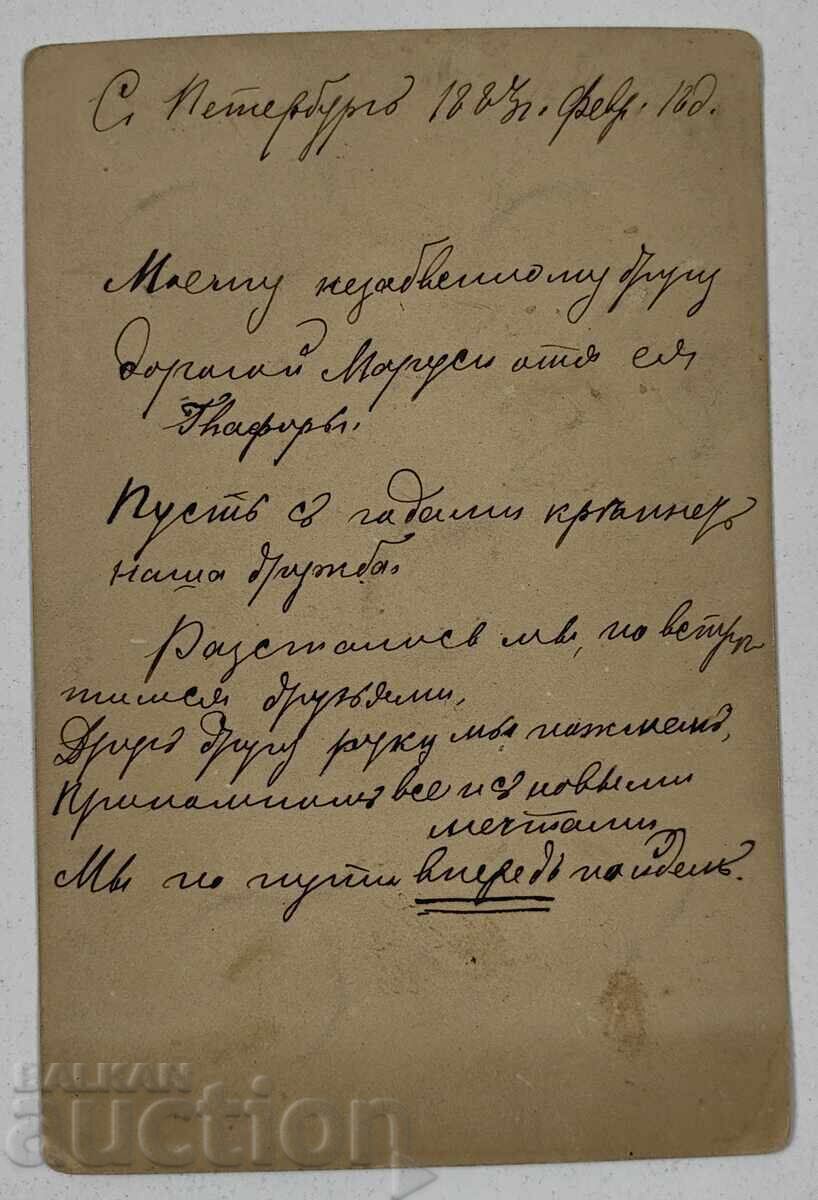 С. Петербургъ 1887г. Февр. 18д.
Моему незабвенному другу
дорогой Маруси отъ ея
Пусть съ годами крѣпнетъ
наша дружба.
Разстались мы, но встрѣ-
тимся друзьями,
Другъ другу руку мы пожмемъ,
Припомнимъ все и съ новыми
мечтами
Мы по пути впередъ пойдемъ.
BALKAN
auction